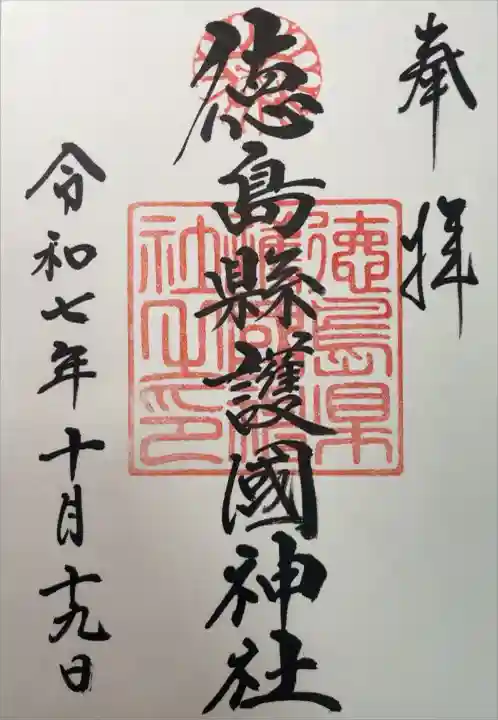 奉拝
徳島縣護國神社
徳島県
護國神
社之印
令和七年十月十九日